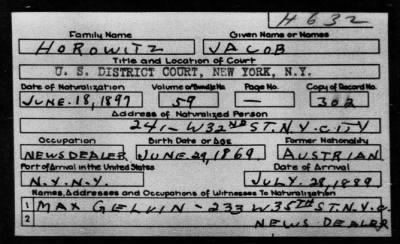 H 632
Family Name Given Name or Names
HOROWITZ JACOB
Title and Location of Court
U. S. DISTRICT COURT, NEW YORK, N.Y.
Date of Naturalization Volume or Bundle No. Page No. Copy of Record No.
JUNE. 18, 1897 59 — 302
Address of Naturalized Person
241 - W 32ND ST. N.Y. CITY
Occupation Birth Date or Age Former Nationality
NEWSDEALER JUNE 29, 1869 AUSTRIAN
Port of Arrival in the United States Date of Arrival
N.Y. N.Y. JULY 28, 1889
Names, Addresses and Occupations of Witnesses To Naturalization
1 MAX GELVIN - 233 W 35TH ST. N.Y. C.
2 NEWS DEALER